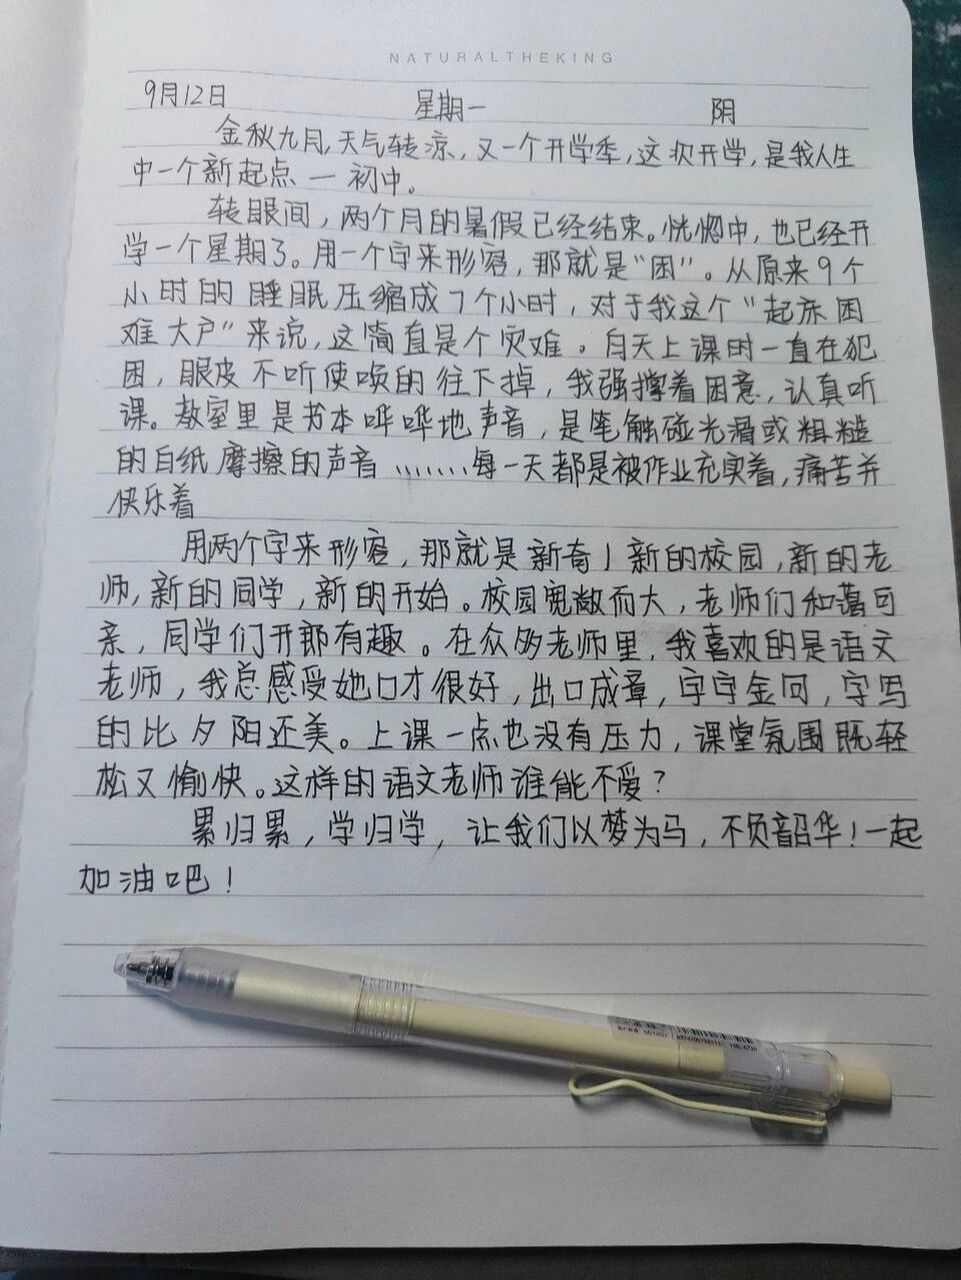 NATURALTHEKING
9月12日 星期一 阴
金秋九月,天气转凉,又一个开学季,这次开学,是我人生
中一个新起点 — 初中。
转眼间,两个月的暑假已经结束。恍惚中,也已经开
学一个星期了。用一个字来形容,那就是“困”。从原来9个
小时的睡眠压缩成7个小时,对于我这个“起床困
难大户”来说,这简直是个灾难。白天上课时一直在犯
困,眼皮不听使唤的往下掉,我强撑着困意,认真听
课。教室里是书本哗哗地声音,是笔触碰光滑或粗糙
的白纸摩擦的声音………每一天都是被作业充实着,痛苦并
快乐着
用两个字来形容,那就是新奇!新的校园,新的老
师,新的同学,新的开始。校园宽敞而大,老师们和蔼可
亲,同学们开郎有趣。在众多老师里,我喜欢的是语文
老师,我总感受她口才很好,出口成章,字字金句,字写
的比夕阳还美。上课一点也没有压力,课堂氛围既轻
松又愉快。这样的语文老师谁能不爱?
累归累,学归学,让我们以梦为马,不负韶华!一起
加油吧!